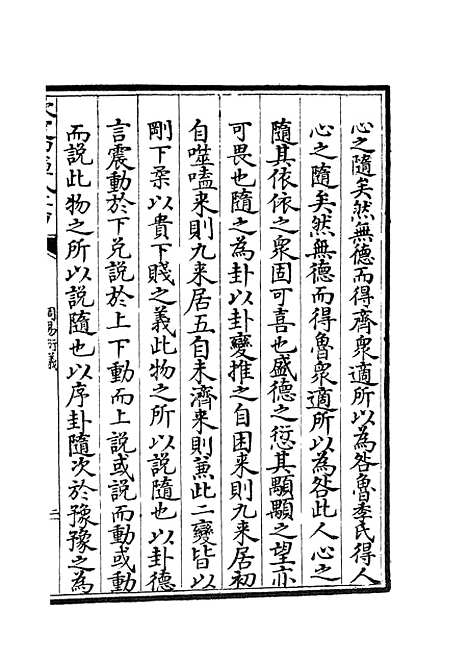 心之隨矣然無德而得齊衆適所以為咎魯季氏得人
心之隨矣然無德而得魯衆適所以為咎此人心之
隨其依依之衆固可喜也盛德之愆其顒顒之望亦
可畏也隨之為卦以卦變推之自困来則九来居初
自噬嗑来則九来居五自未濟来則兼此二變皆以
剛下柔以貴下賤之義此物之所以說隨也以卦德
言震動於下兑說於上下動而上說或說而動或動
而說此物之所以說隨也以序卦隨次於豫豫之為
周易衍義